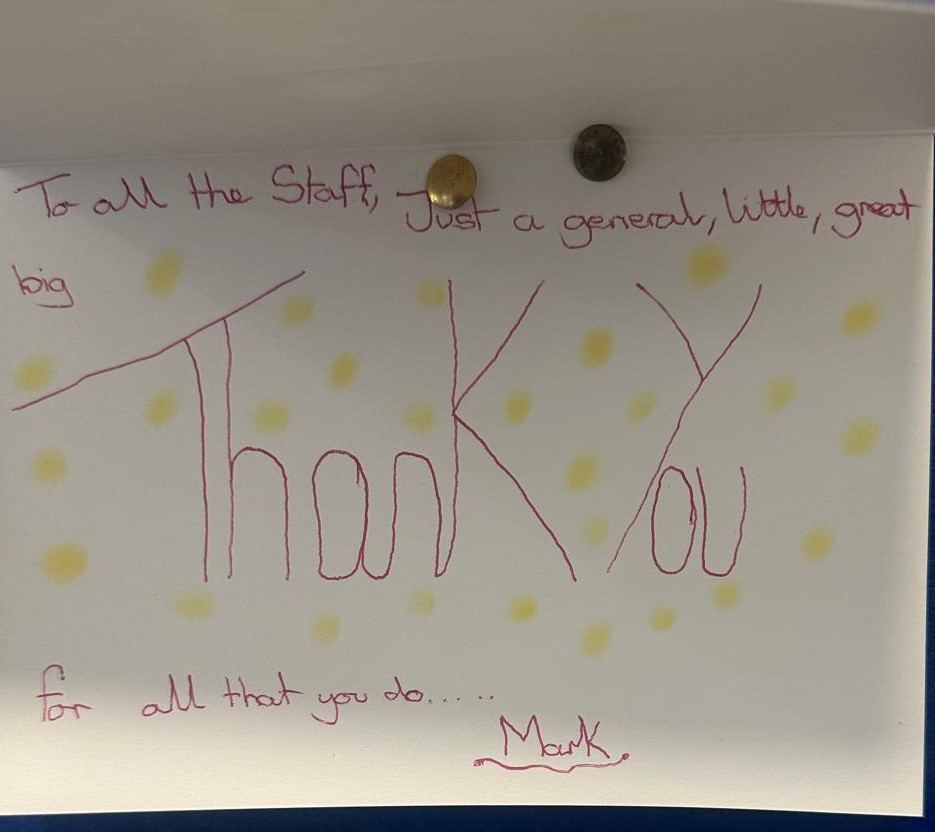 To all the Staff, Just a general, little, great
big
ThanK You
for all that you do.....
Mark.